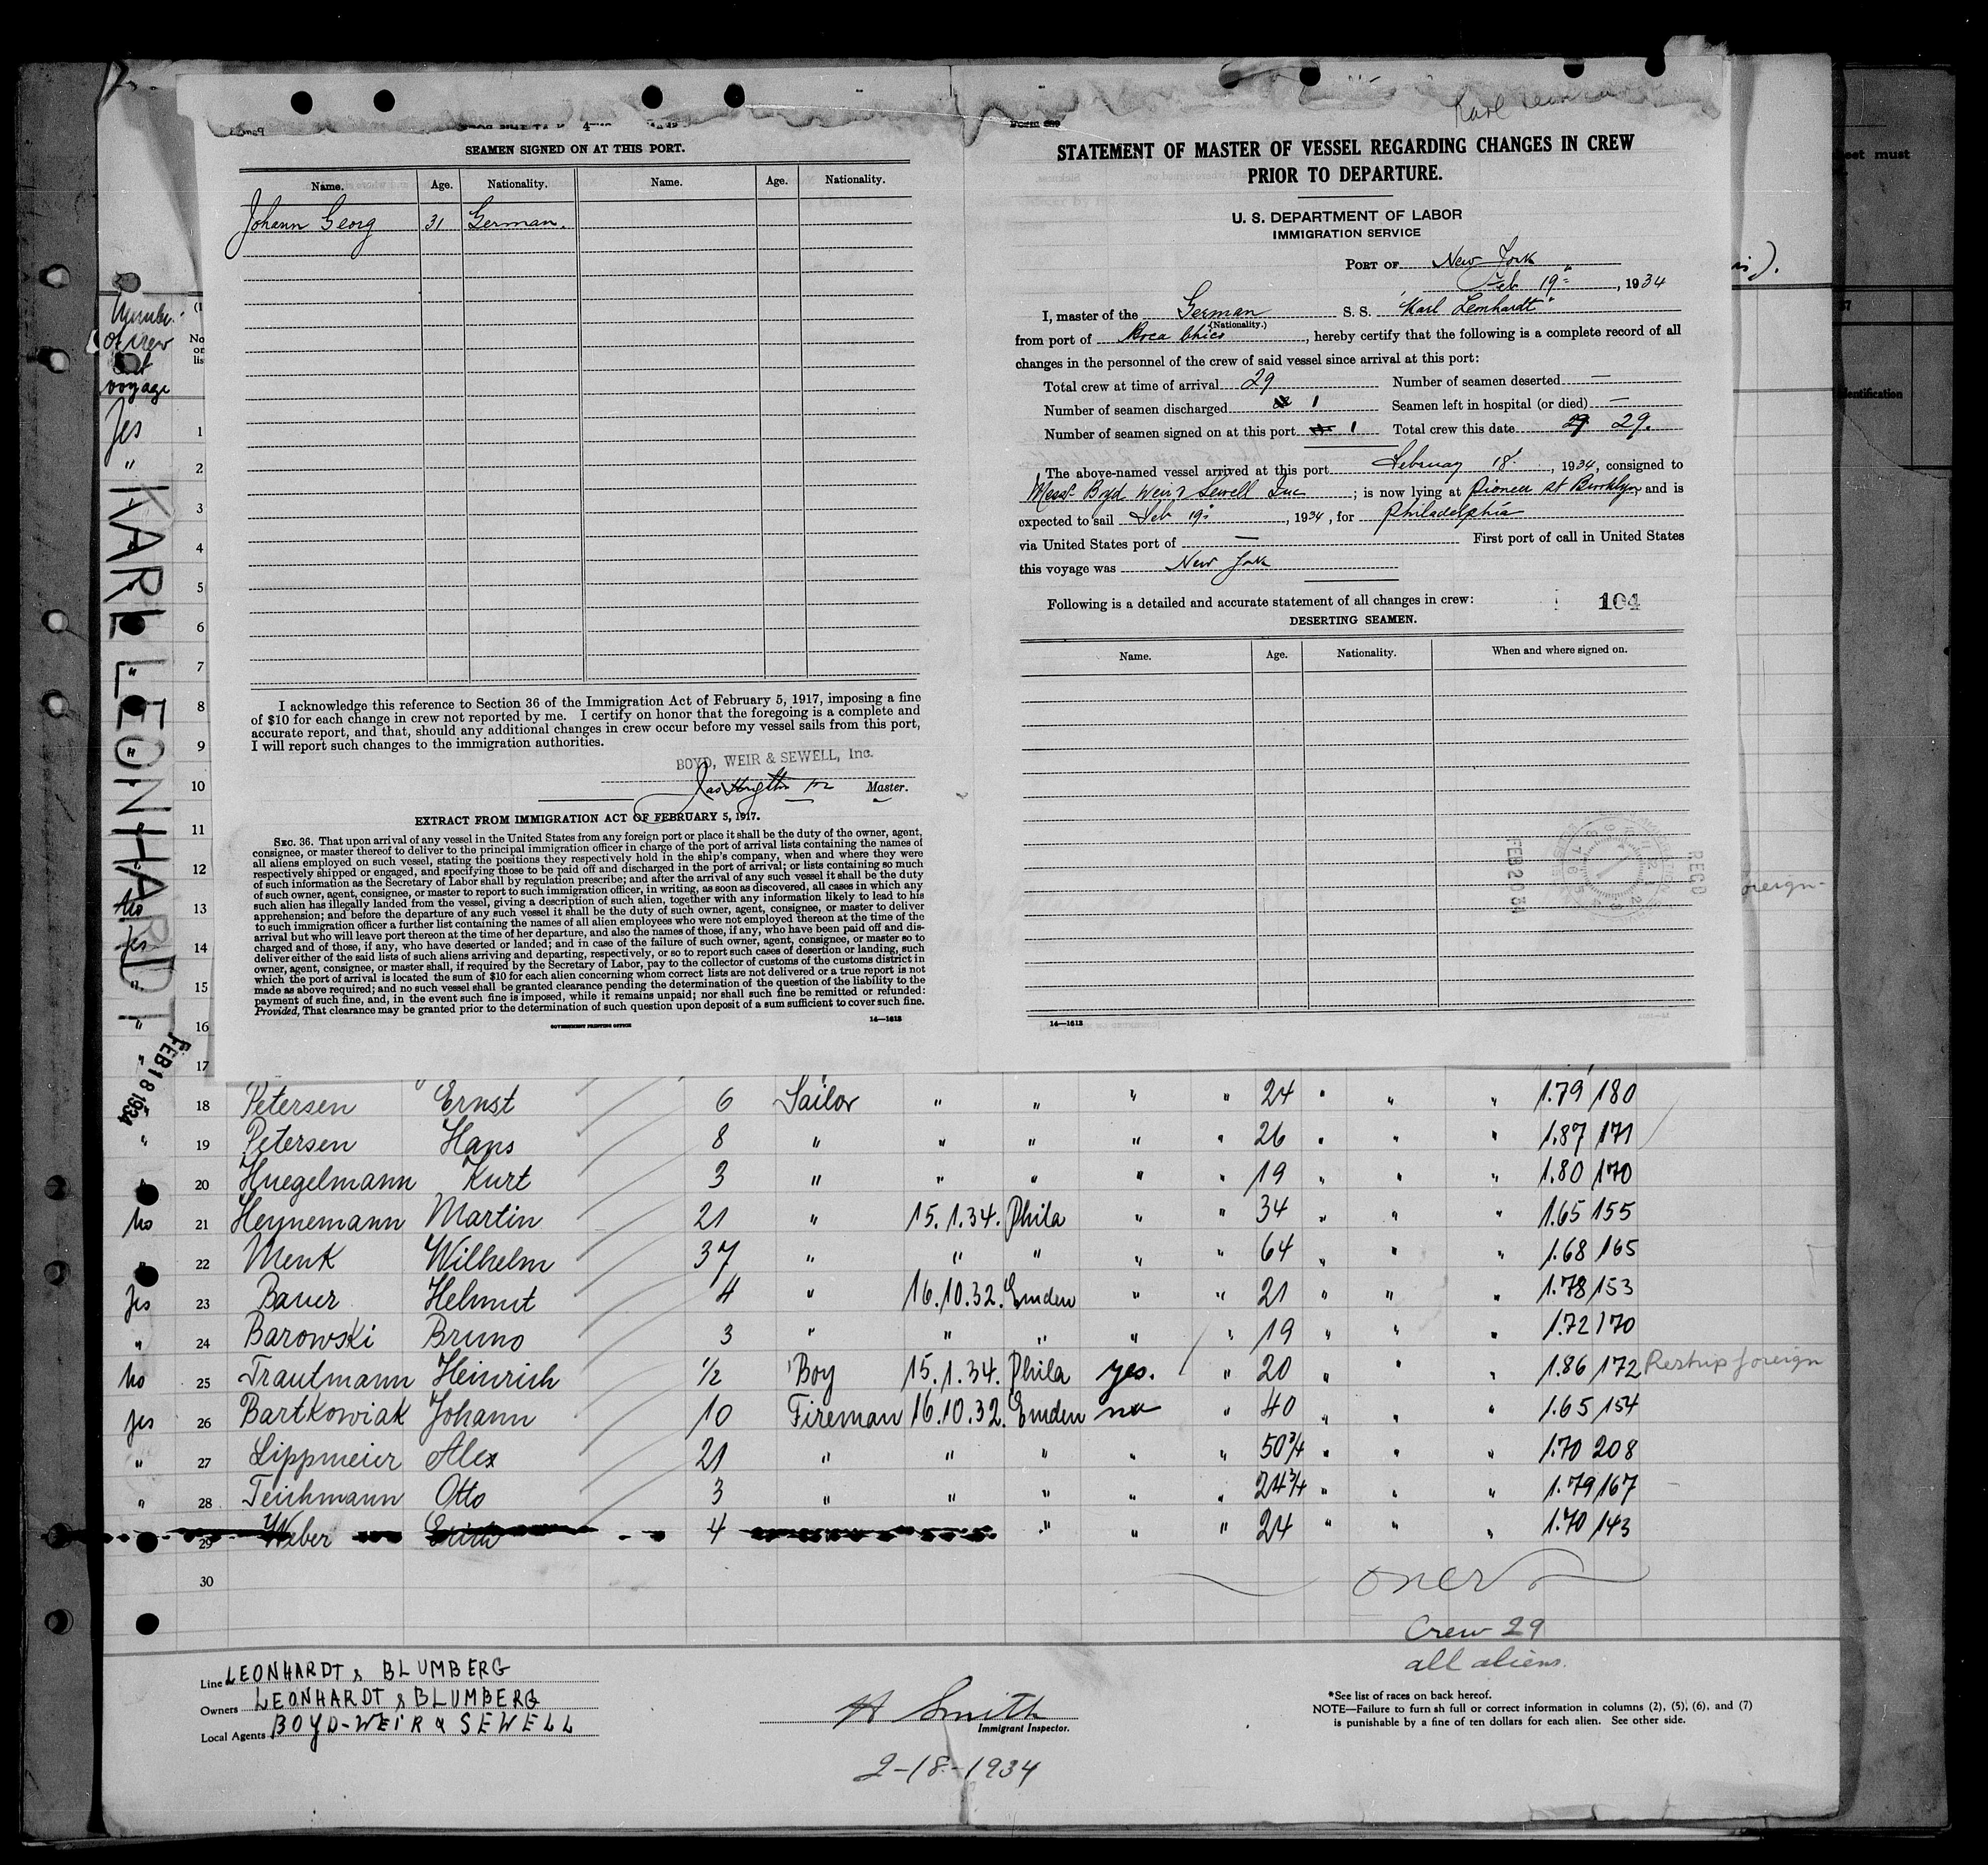 SEAMEN SIGNED ON AT THIS PORT.
Name. Age. Nationality. Name. Age. Nationality.
Johann Georg 31 German.
I acknowledge this reference to Section 36 of the Immigration Act of February 5, 1917, imposing a fine
of $10 for each change in crew not reported by me. I certify on honor that the foregoing is a complete and
accurate report, and that, should any additional changes in crew occur before my vessel sails from this port,
I will report such changes to the immigration authorities.
BOYD, WEIR & SEWELL, Inc.
Master.
EXTRACT FROM IMMIGRATION ACT OF FEBRUARY 5, 1917.
SEC. 36. That upon arrival of any vessel in the United States from any foreign port or place it shall be the duty of the owner, agent,
consignee, or master thereof to deliver to the principal immigration officer in charge of the port of arrival lists containing the names of
all aliens employed on such vessel, stating the positions they respectively hold in the ship's company, when and where they were
respectively shipped or engaged, and specifying those to be paid off and discharged in the port of arrival; or lists containing so much
of such information as the Secretary of Labor shall by regulation prescribe; and after the arrival of any such vessel it shall be the duty
of such owner, agent, consignee, or master to report to such immigration officer, in writing, as soon as discovered, all cases in which any
such alien has illegally landed from the vessel, giving a description of such alien, together with any information likely to lead to his
apprehension; and before the departure of any such vessel it shall be the duty of such owner, agent, consignee, or master to deliver
to such immigration officer a further list containing the names of all alien employees who were not employed thereon at the time of the
arrival but who will leave port thereon at the time of her departure, and also the names of those, if any, who have been paid off and dis-
charged and of those, if any, who have deserted or landed; and in case of the failure of such owner, agent, consignee, or master so to
deliver either of the said lists of such aliens arriving and departing, respectively, or so to report such cases of desertion or landing, such
owner, agent, consignee, or master shall, if required by the Secretary of Labor, pay to the collector of customs of the customs district in
which the port of arrival is located the sum of $10 for each alien concerning whom correct lists are not delivered or a true report is not
made as above required; and no such vessel shall be granted clearance pending the determination of the question of the liability to the
payment of such fine, and, in the event such fine is imposed, while it remains unpaid; nor shall such fine be remitted or refunded:
Provided, That clearance may be granted prior to the determination of such question upon deposit of a sum sufficient to cover such fine.
GOVERNMENT PRINTING OFFICE 14—1613
Karl
STATEMENT OF MASTER OF VESSEL REGARDING CHANGES IN CREW
PRIOR TO DEPARTURE.
U. S. DEPARTMENT OF LABOR
IMMIGRATION SERVICE
PORT OF New York
Feb 19", 1934
I, master of the German S. S. "Karl Leonhardt"
(Nationality.)
from port of Boca Chica, hereby certify that the following is a complete record of all
changes in the personnel of the crew of said vessel since arrival at this port:
Total crew at time of arrival 29 Number of seamen deserted —
Number of seamen discharged 1 Seamen left in hospital (or died) —
Number of seamen signed on at this port 1 Total crew this date 29 29.
The above-named vessel arrived at this port February 18", 1934, consigned to
Messrs Boyd Weir & Sewell Inc; is now lying at Pioneer St Brooklyn and is
expected to sail Feb 19", 1934, for Philadelphia
via United States port of — First port of call in United States
this voyage was New York
Following is a detailed and accurate statement of all changes in crew: 104
DESERTING SEAMEN.
Name. Age. Nationality. When and where signed on.
RECD
FEB 20 34
14—1613
KARL LEONHARDT
FEB 18 1934
voyage
Yes 1
" 2
3
4
5
6
7
8
9
10
11
12
No 13
Yes 14
" 15
" 16
" 17
18 Petersen Ernst 6 Sailor " " " " 24 " " " 1.79 180
" 19 Petersen Hans 8 " " " " " 26 " " " 1.87 171
20 Huegelmann Kurt 3 " " " " " 19 " " " 1.80 170
No 21 Heynemann Martin 21 " 15.1.34. Phila " " 34 " " " 1.65 155
22 Menk Wilhelm 37 " " " " " 64 " " " 1.68 165
Yes 23 Bauer Helmut 4 " 16.10.32. Emden " " 21 " " " 1.78 153
" 24 Barowski Bruno 3 " " " " " 19 " " " 1.72 170
No 25 Trautmann Heinrich 1/2 Boy 15.1.34. Phila yes. " 20 " " " 1.86 172 Reship foreign
yes 26 Bartkowiak Johann 10 Fireman 16.10.32. Emden no " 40 " " " 1.65 154
" 27 Lippmeier Alex 21 " " " " " 50 3/4 " " " 1.70 208
" 28 Teichmann Otto 3 " " " " " 24 3/4 " " " 1.79 167
29 Weber Erich 4 " " " 24 " " " 1.70 143
30
over
Crew 29
all aliens.
Line LEONHARDT & BLUMBERG
Owners LEONHARDT & BLUMBERG
Local Agents BOYD-WEIR & SEWELL
H Smith
Immigrant Inspector.
2-18-1934
*See list of races on back hereof.
NOTE—Failure to furnish full or correct information in columns (2), (5), (6), and (7)
is punishable by a fine of ten dollars for each alien. See other side.